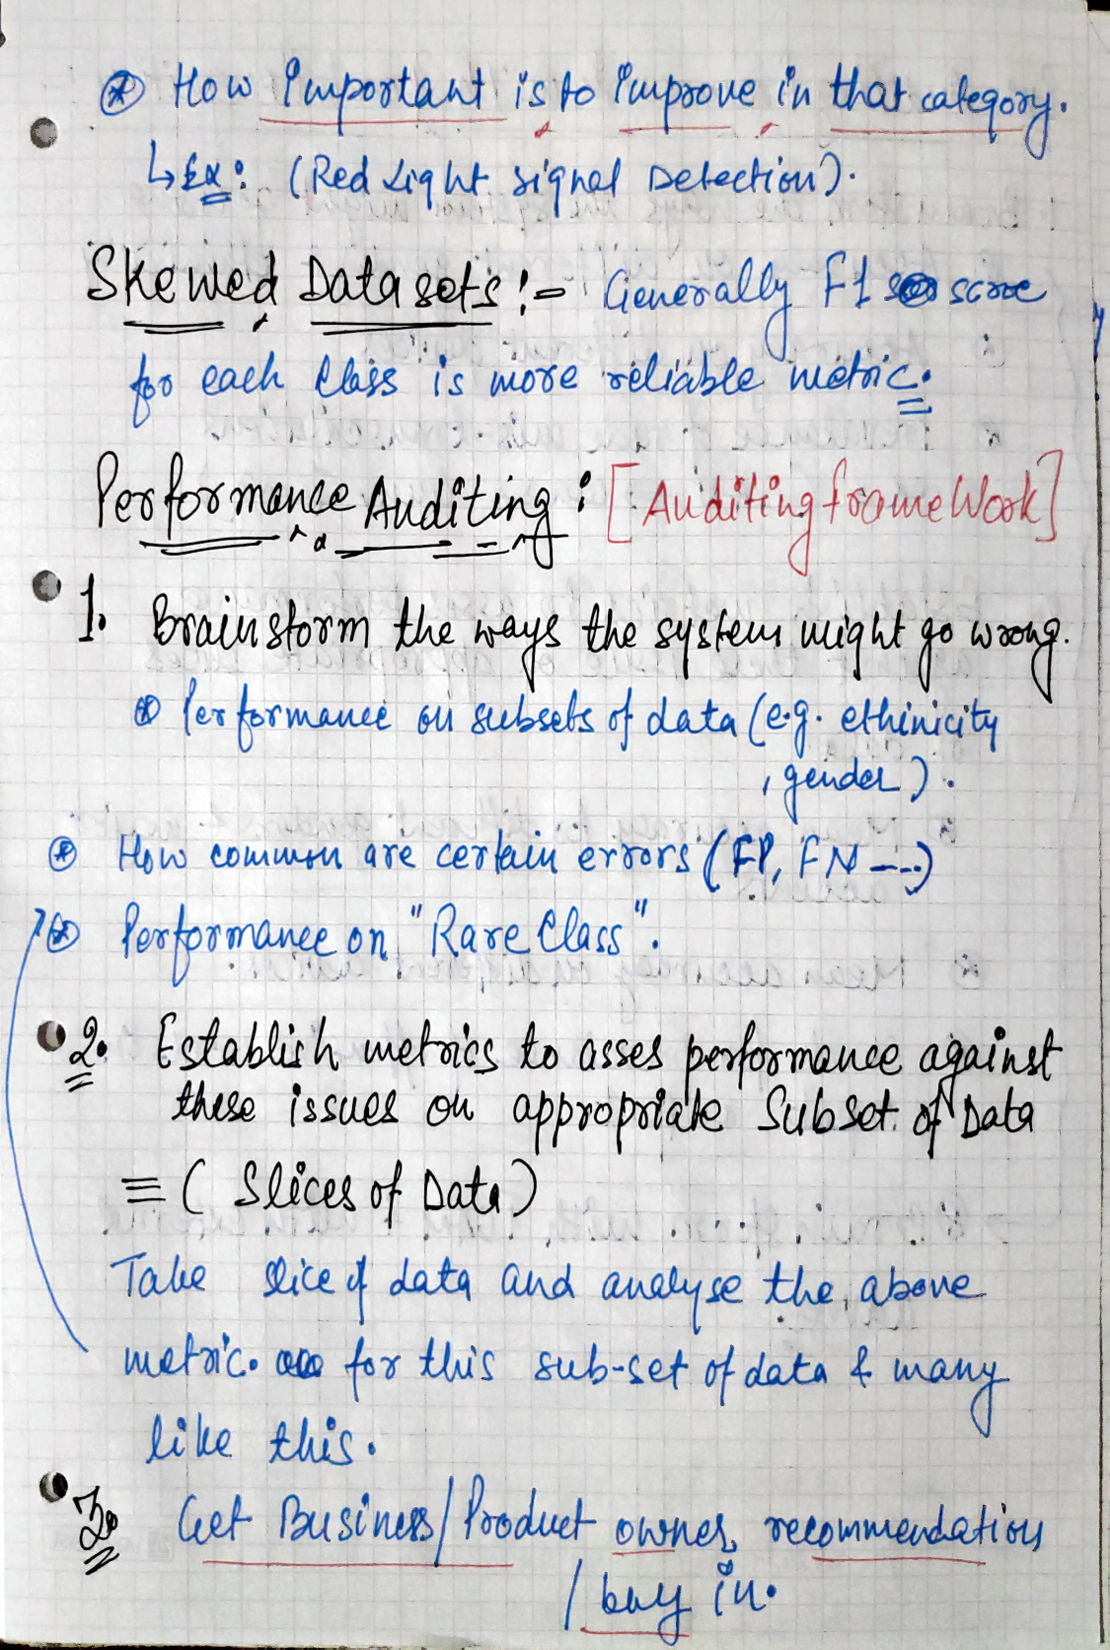 ⊛ How Important is to Improve in that category.
↳ Ex: (Red Light signal Detection).
Skewed Datasets :- Generally F1 score
for each Class is more reliable metric.
Performance Auditing : [Auditing frameWork]
1. Brainstorm the ways the system might go wrong.
⊛ Performance on subsets of data (e.g. ethinicity
, gender).
⊛ How common are certain errors (FP, FN ---)
⊛ Performance on "Rare Class".
2. Establish metrics to asses performance against
these issues on appropriate Subset of Data
≡ ( Slices of Data)
Take slice of data and analyse the above
metric. for this sub-set of data & many
like this.
3. Get Business/Product owner recommendation
/ buy in.